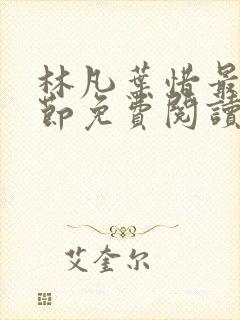 林凡葉惜最
節免費閱讀
艾奎尔